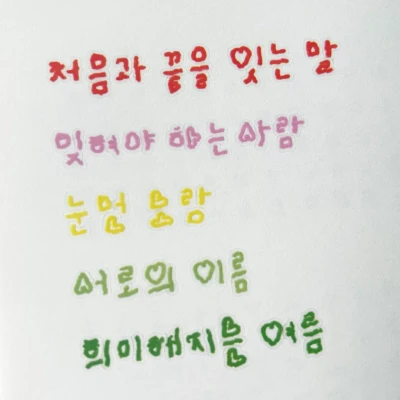 처음과 끝을 잇는 말
잊혀야 하는 사람
눈멂
서로의 이름
희미해지는 여름